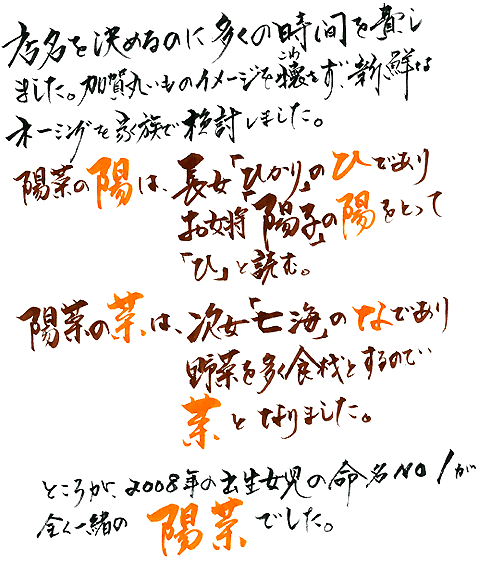 店名を決めるのに多くの時間を費し
ました。加賀丸いものイメージを壊さず、新鮮な
ネーミングを家族で検討しました。
陽菜の陽は、長女「ひかり」のひであり
お女将「陽子」の陽をとって
「ひ」と読む。
陽菜の菜は、次女「七海」のなであり
野菜を多く食材とするので
菜となりました。
ところが、2008年の出生女児の命名NO1が
全く一緒の陽菜でした。